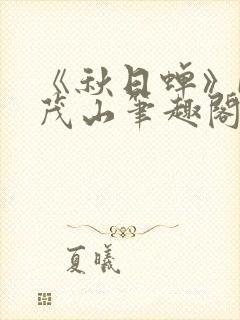 《秋日蝉》
茂山笔趣阁
夏曦